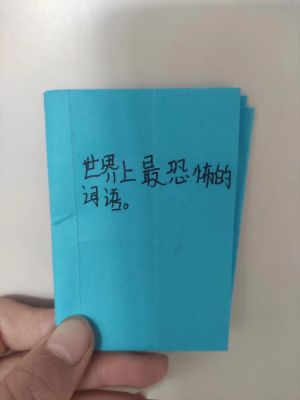 世界上最恐怖的
词语。